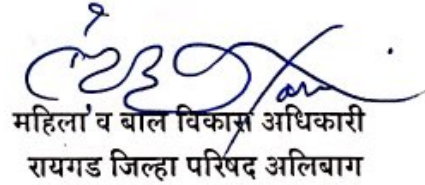 महिला व बाल विकास अधिकारी
रायगड जिल्हा परिषद अलिबाग